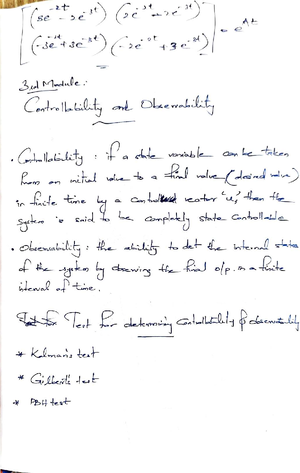 (3e^-2t - 2e^-3t) (2e^-2t - 2e^-3t)
(-3e^-2t + 3e^-3t) (-2e^-2t + 3e^-3t) = e^At
3rd Module:
Controllability and Observability
• Controllability : if a state variable can be taken
from an initial value to a final value (desired value)
in finite time by a control vector 'u', then the
system is said to be completely state controllable
• Observability : the ability to det the internal states
of the system by observing the final o/p. in a finite
interval of time.
Test for determining Controllability & observability
* Kalman's test
* Gilbert's test
* PBH test